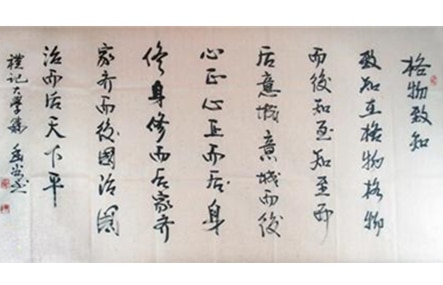 格物致知
致知在格物格物
而後知至知至而
后意诚意诚而後
心正心正而后身
修身修而后家齐
家齐而後國治國
治而后天下平
禮记大學篇